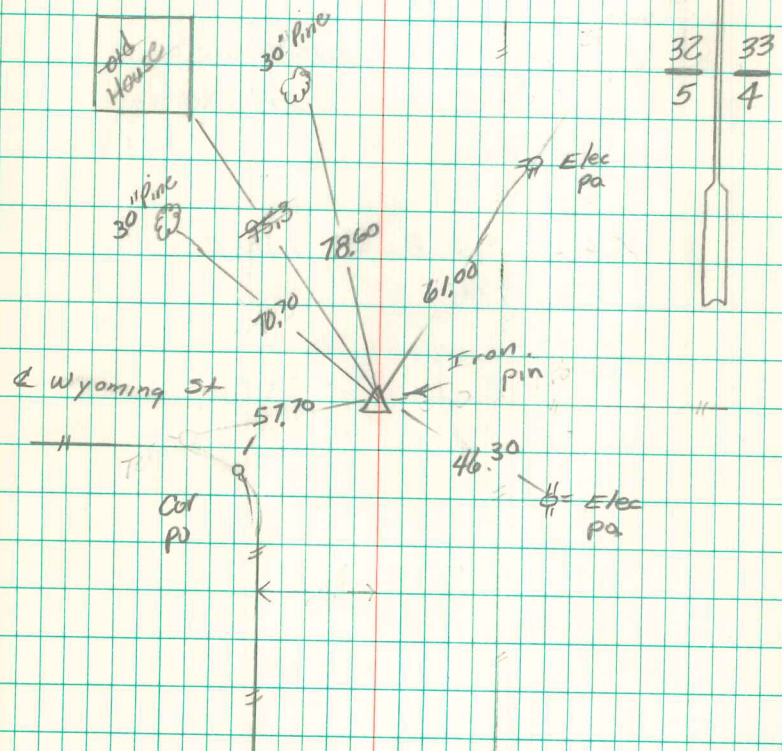 Old
House
30" Pine
32 33
5 4
30" Pine
Elec
po
95.3
78.60
61.00
70.70
Iron
pin
℄ Wyoming St
57.70
46.30
Elec
po
Cor
po